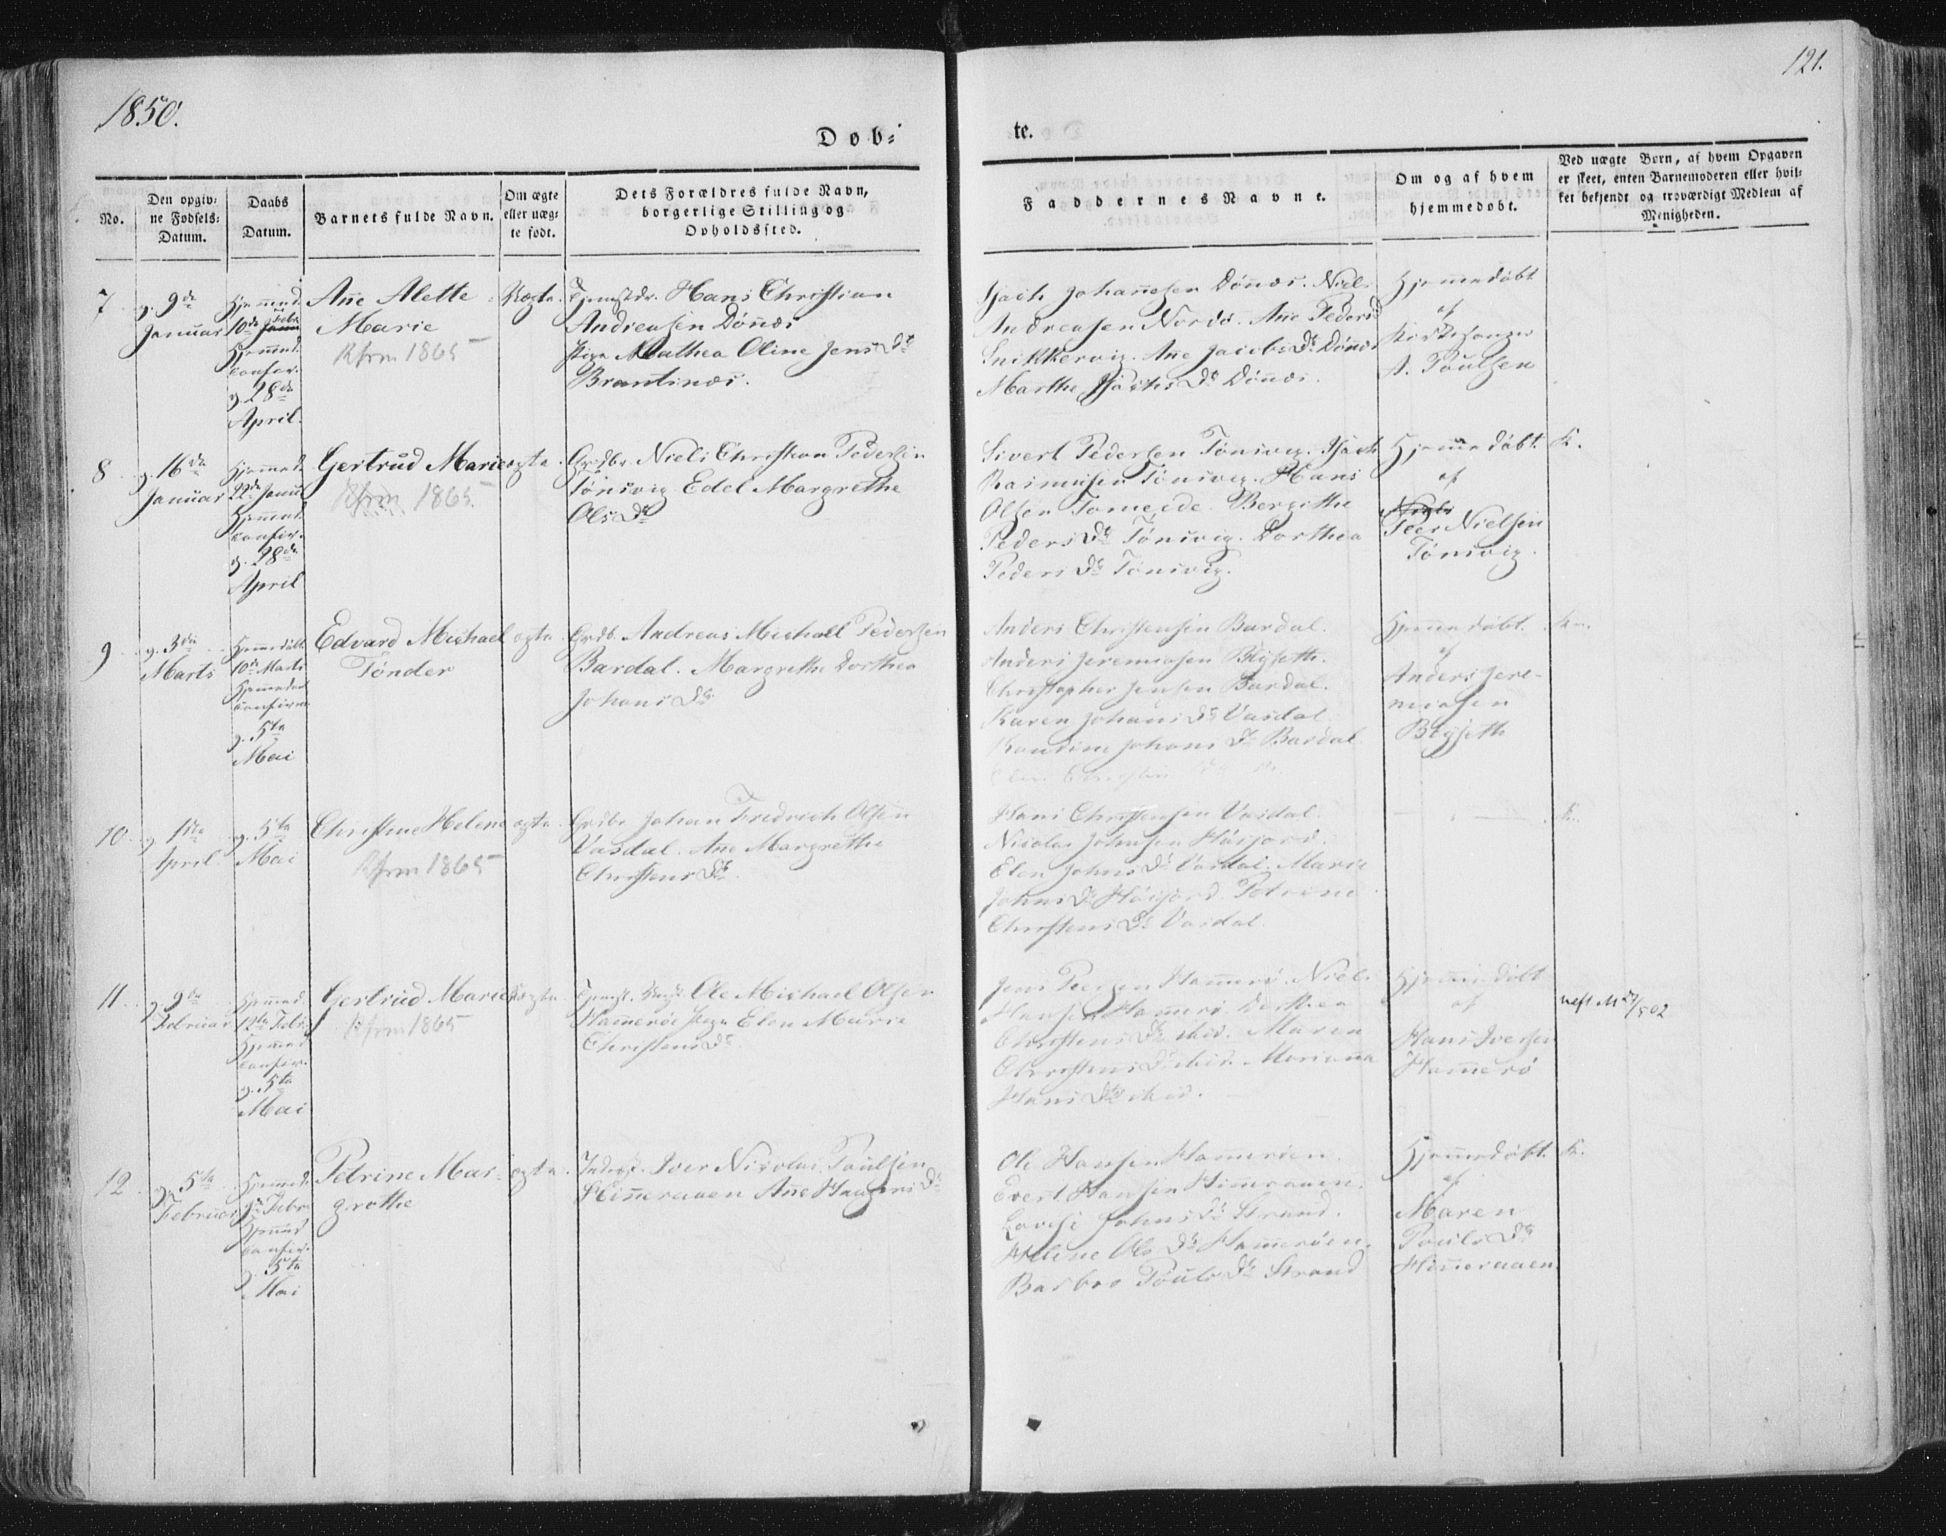 1850.
121.
Døb-
te.
No.
Den opgiv-
ne Fødsels-
Datum.
Daabs
Datum.
Barnets fulde Navn.
Om ægte
eller uæg-
te født.
Dets Forældres fulde Navn,
borgerlige Stilling og
Opholdssted.
Faddernes Navne.
Om og af hvem
hjemmedøbt.
Ved uægte Børn, af hvem Opgaven
er skeet, enten Barnemoderen eller hvil-
ket bekjendt og troværdigt Medlem af
Menigheden.
7
9de
Januar
Hjemmed.
10de Febr
Hjemmed.
confir.
28de
April.
Ane Alette
Marie
1865
Uægte.
Hans Christian
Andreasen Dønnes
Pige Mathea Oline Jens Dr
Brantsnes.
Johannesen Dønnes. Niels
Andreasen Nordø. Ane Peders Dr
Snikkervig. Ane Jacobs Dr Dønnes
Marthe Dr Dønnes.
Hjemmedøbt
af
Kirkesanger
A. Poulsen
8
16de
Januar
Hjemmed.
22de Janu
Hjemmed.
confir.
28de
April
Gertrud Marie
1865
ægte.
Grdbr. Niels Christian Pedersen
Tønsvig Edel Margrethe
Ols Dr
Sivert Pedersen Tønsvig. Isach
Rasmusen Tønsvig. Hans
Olsen Tomeide. Bergithe
Peders Dr Tønsvig. Dorthea
Peders Dr Tønsvig.
Hjemmedøbt.
af
Peer Nielsen
Tønsvig.
K.
9
3die
Marts
Hjemmedøbt
10de Marts
Hjemmedaab
confirm
5te
Mai
Edvard Michael
Tønder
ægte
Grdb. Andreas Michael Pedersen
Bardal. Margrethe Dorthea
Johans Dr
Anders Christensen Bardal.
Anders Jeremiasen Blyseth.
Christopher Jensen Bardal.
Karen Johans Dr Vasdal.
Johans Dr Bardal
Hjemmedøbt.
af
Anders Jere-
miasen
Blyseth
K.
10
1ste
April
5te
Mai
Christine Helene
1865
ægte.
Grdbr Johan Fredrich Olsen
Vasdal. Ane Margrethe
Christens Dr.
Hans Christensen Vasdal.
Nicolai Johnsen Høsjord.
Elen Johns Dr Vasdal. Marie
Johns Dr Høsjord. Petrine
Christens Dr Vasdal.
K.
11
9de
Februar
Hjemmed.
12te Febr.
Hjemmed
confir.
5te
Mai
Gertrud Marie
1865
Uægte.
Ole Michael Olsen
Hammerøe Pige Elen Marie
Christens Dr
Jens Hammerø. Niels
Hansen Hammerø. Dorthea
Christens Dr ibid. Maren
Christens Dr ibid. Marianna
Hans Dr ibid.
Hjemmedøbt
af
Hans Iversen
Hammerø
12
5te
Februar
Hjemmed.
Febr
Hjemmed
confir.
5te
Mai
Petrine Mar-
grethe
ægte.
Inderst. Iver Nicolai Poulsen
Himeraaen Ane Hagens Dr
Ole Hansen Hamerøen.
Evert Hansen Himeraaen.
Johns Dr Strand.
Helene Ols Dr Hamerøen.
Barbro Pouls Dr Strand
Hjemmedøbt.
af
Maren
Pouls Dr
Himeraaen
K.